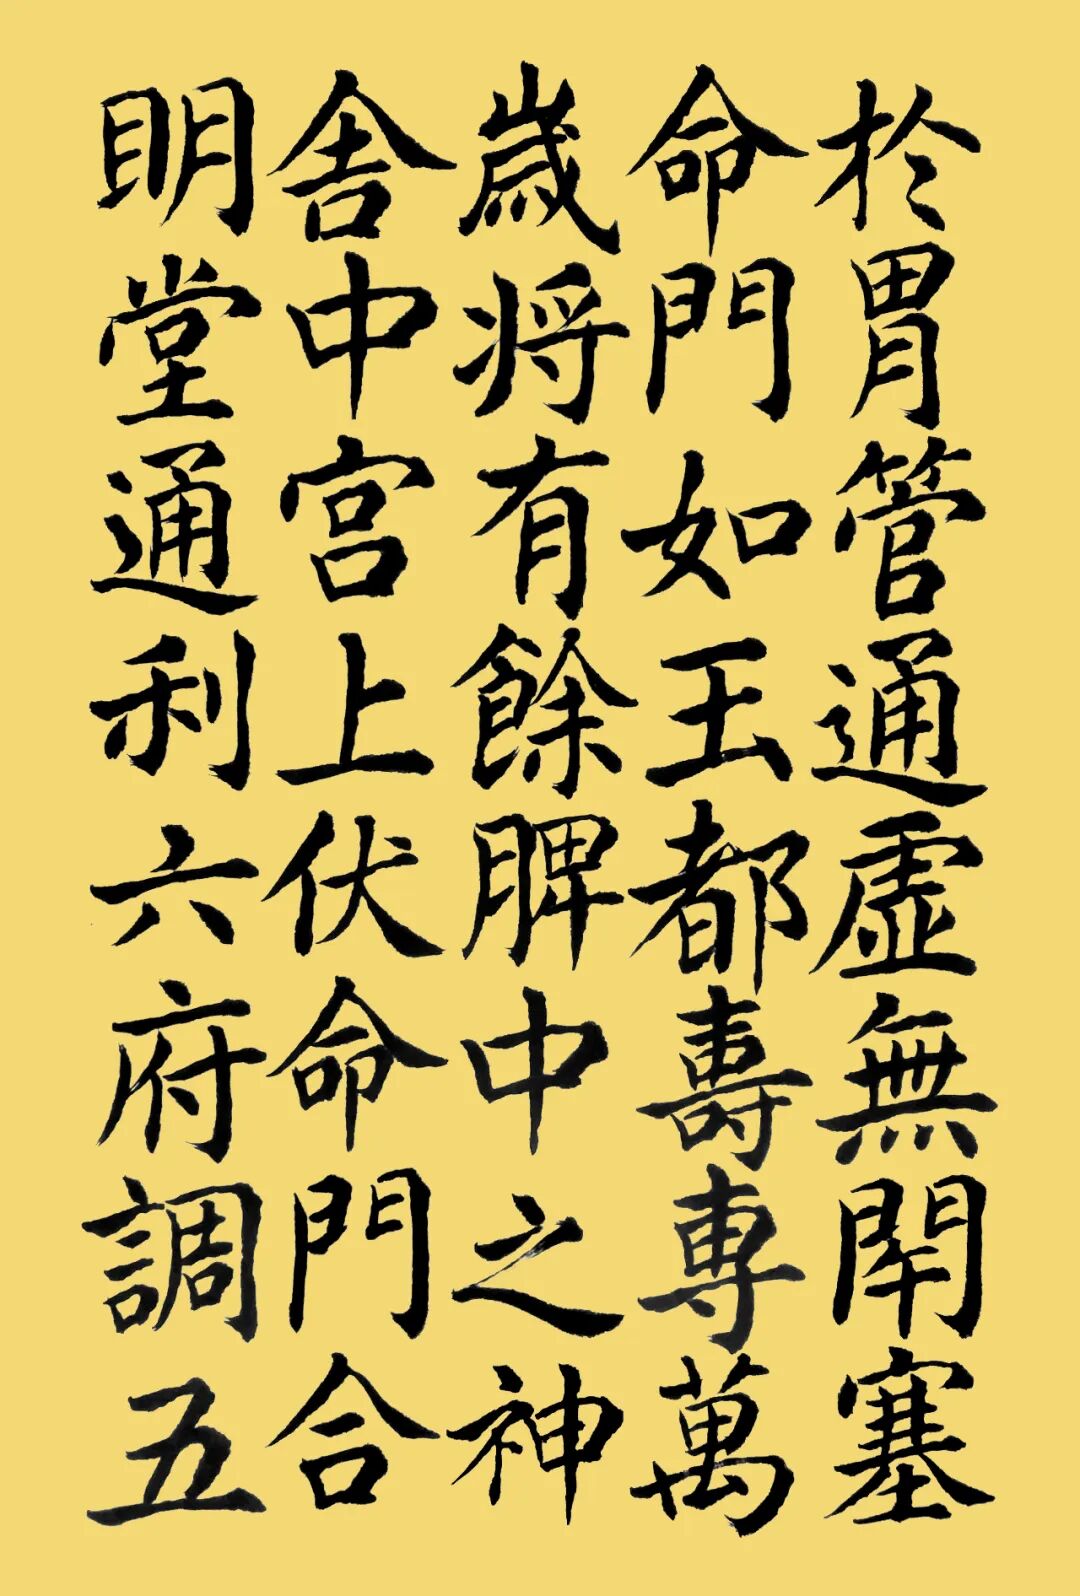 於胃管通虛無閇塞
命門如玉都壽專萬
歲將有餘脾中之神
舍中宮上伏命門合
明堂通利六府調五